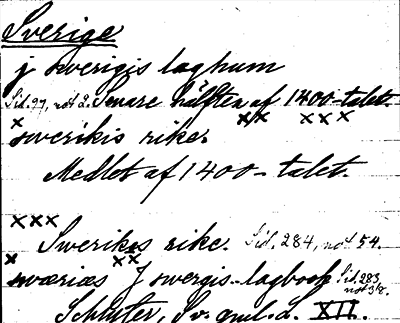 Sverige
j swerigis laghum
Sid. 97, not 2. Senare hälften af 1400-talet.
x xx xxx
swerikis rike.
Medlet af 1400-talet.
xxx
Swerikes rike. Sid. 284, not 54.
x xx
swæriæs J swergis-lagbook Sid. 283 not 38.
Schlyter, Sv. gml. l. XII.